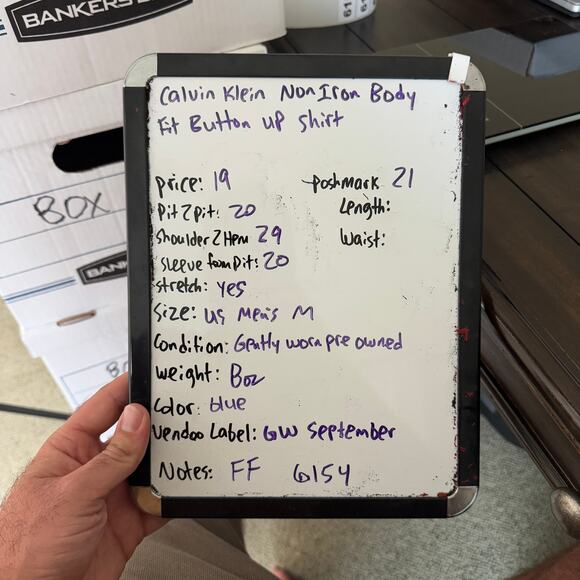 BANKERS
Calvin Klein Non Iron Body
Fit Button up shirt
price: 19
poshmark 21
Pit 2 pit: 20
Length:
Shoulder 2 Hem 29
Waist:
Sleeve from Pit: 20
stretch: yes
Size: US Men's M
Condition: Gently worn pre owned
weight: 8oz
Color: blue
Vendoo Label: GW September
Notes: FF 6154
BOX
BANK